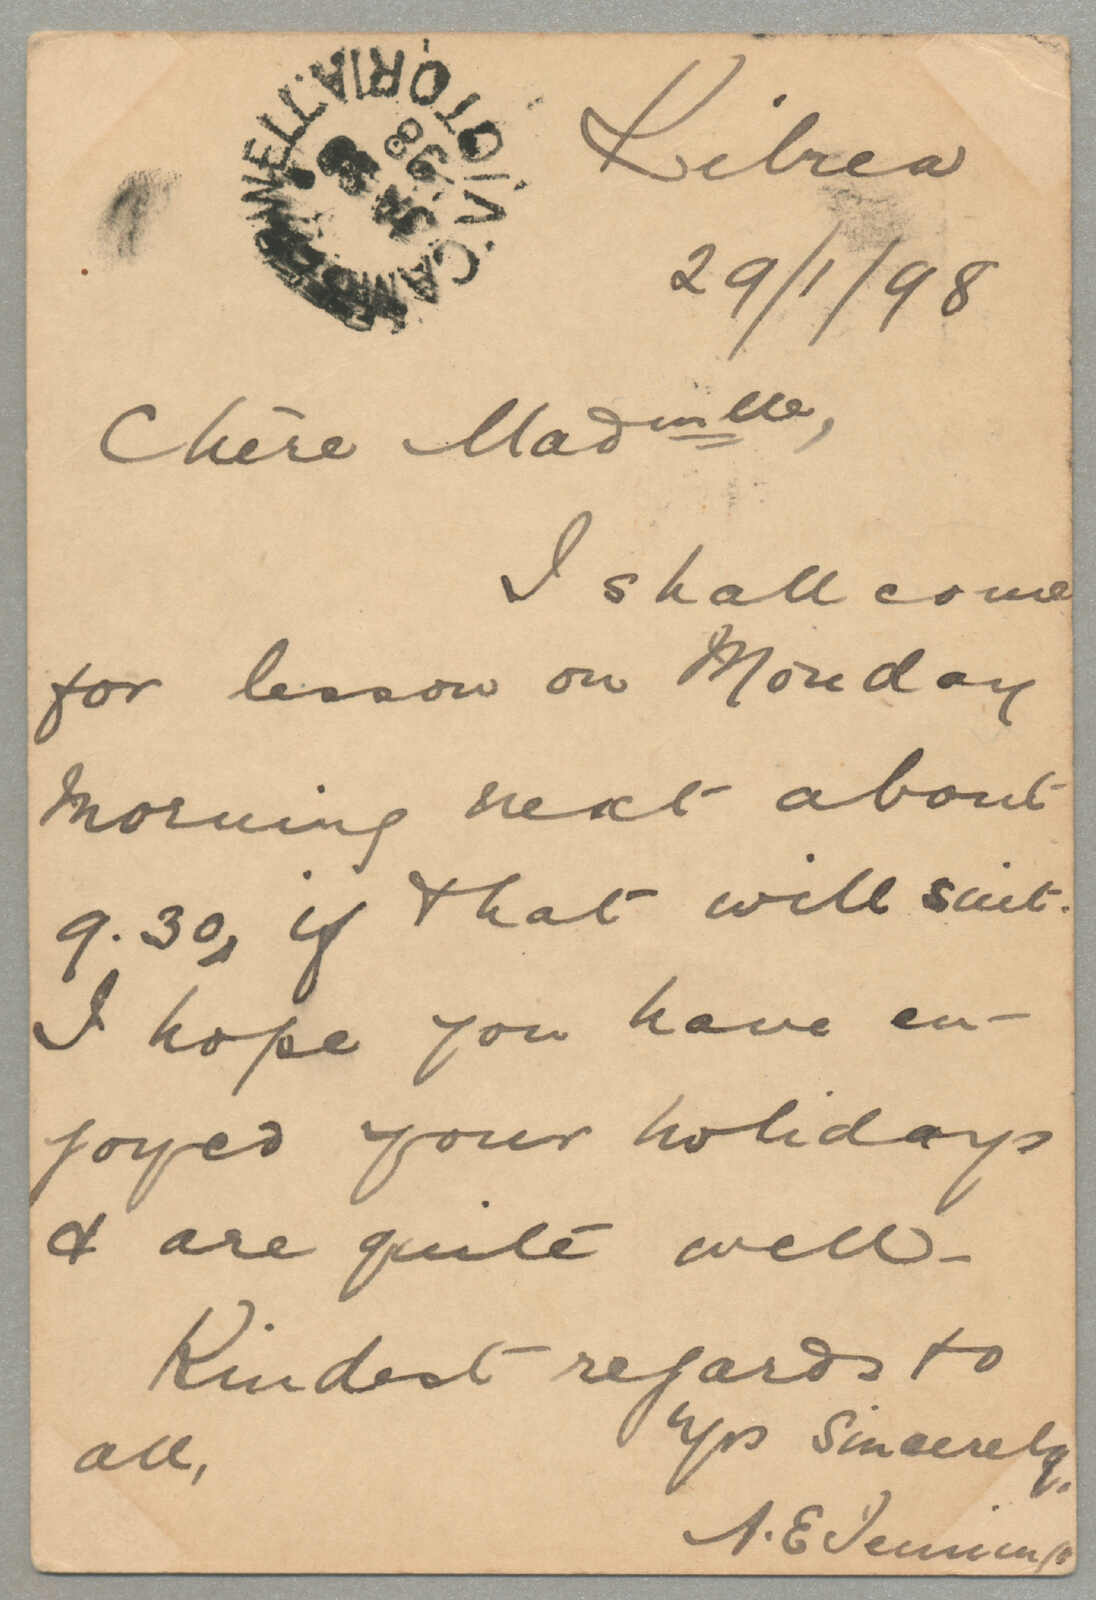 CAMBERWELL. VICTORIA.
JA
98
Kibrea
29/1/98
Chère Madmlle,
I shall come
for lesson on Monday
Morning next about
9.30, if that will suit.
I hope you have en-
joyed your holidays
& are quite well -
Kindest regards to
all,
Yrs Sincerely,
A. E Jennings